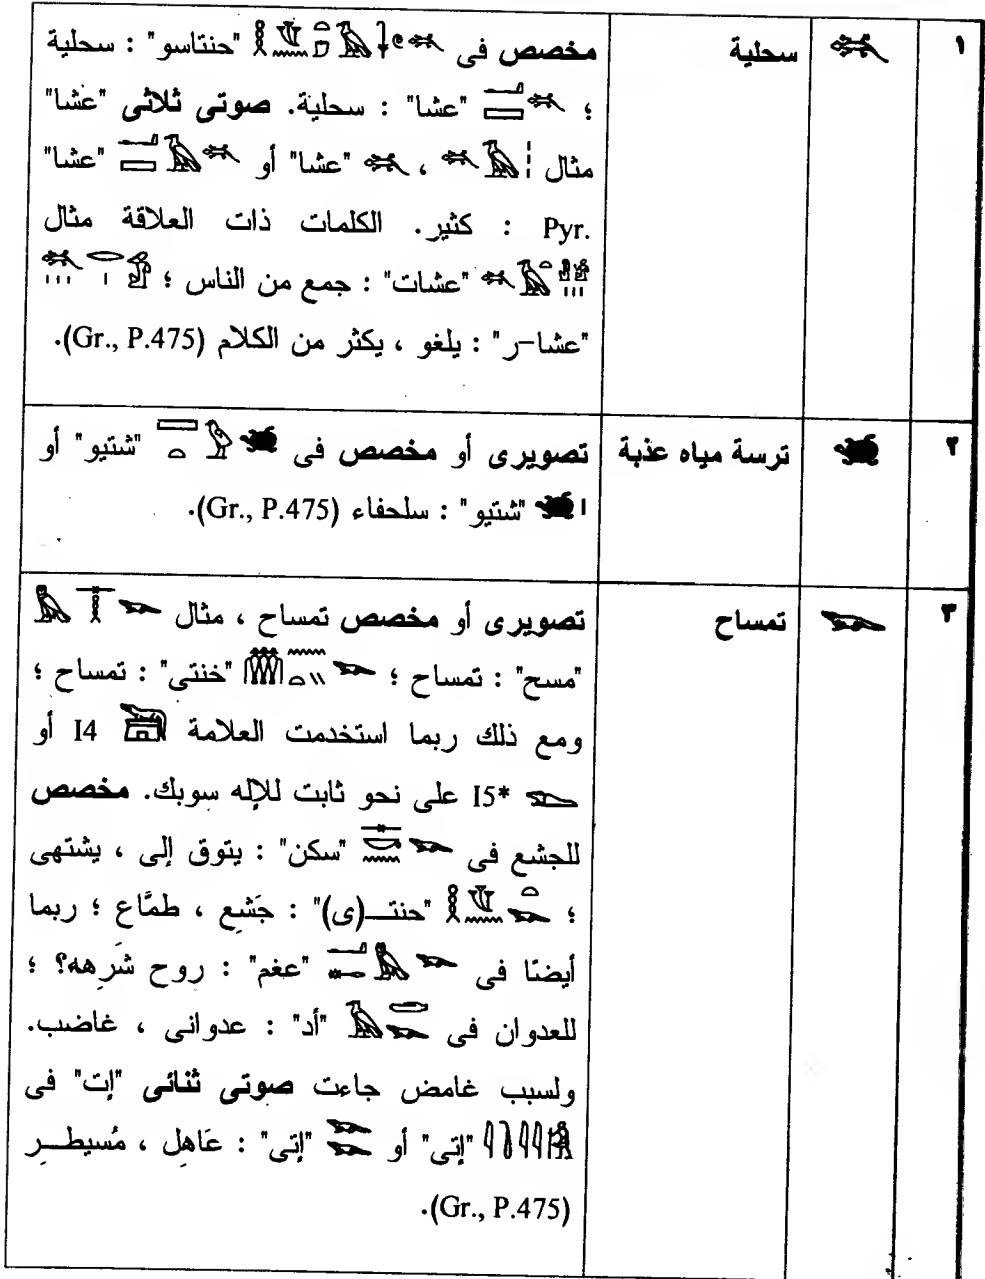 ١ 𓆈 سحلية مخصص فى 𓎛𓈖𓏌𓏏𓄿𓇓𓏲𓆈 "حنتاسو" : سحلية
؛ 𓂝𓈙𓆈 "عشا" : سحلية. صوتى ثلاثى "عشا"
مثال 𓆈𓄿𓏥 ، 𓆈 "عشا" أو 𓂝𓈙𓄿𓆈 "عشا"
Pyr. : كثير. الكلمات ذات العلاقة مثال
𓆈𓄿𓏏𓀀𓁐𓏥 "عشات" : جمع من الناس ؛ 𓆈𓏥𓂋𓏤𓀁
"عشا-ر" : يلغو ، يكثر من الكلام (Gr., P.475).
٢ 𓆉 ترسة مياه عذبة تصويرى أو مخصص فى 𓈙𓏏𓅱𓆉 "شتيو" أو
𓆉𓏤 "شتيو" : سلحفاء (Gr., P.475).
٣ 𓆊 تمساح تصويرى أو مخصص تمساح ، مثال 𓅓𓋴𓎛𓆊
"مسح" : تمساح ؛ 𓏃𓈖𓏏𓏭𓆊 "خنتى" : تمساح ؛
ومع ذلك ربما استخدمت العلامة 𓆋 I4 أو
𓆌 I5* على نحو ثابت للإله سوبك. مخصص
للجشع فى 𓊃𓎡𓈖𓆊 "سكن" : يتوق إلى ، يشتهى
؛ 𓎛𓈖𓏏𓆊 "حنتـ(ى)" : جَشِع ، طمَّاع ؛ ربما
أيضًا فى 𓂝𓐍𓅓𓆊 "عغم" : روح شَرِهه؟ ؛
للعدوان فى 𓄿𓂧𓆊 "أد" : عدوانى ، غاضب.
ولسبب غامض جاءت صوتى ثنائى "إت" فى
𓇋𓏏𓇋𓇋𓀭 "إتى" أو 𓆊𓆊 "إتى" : عَاهِل ، مُسيطـرِ
(Gr., P.475).